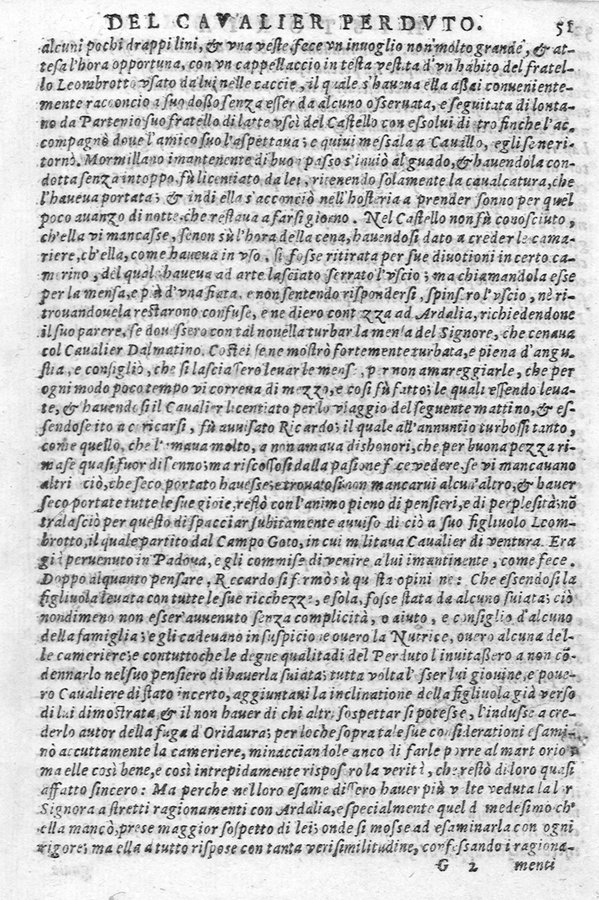 DEL CAVALIER PERDVTO. 51
alcuni pochi drappi lini, & vna veste fece vn inuoglio non molto grande, & at-
tesa l'hora opportuna, con vn cappellaccio in testa vestita d'vn habito del fratel-
lo Leombrotto vsato da lui nelle caccie, il quale s'haueua ella assai conueniente-
mente racconcio a suo dosso senza esser da alcuno osseruata, e seguitata di lonta-
no da Partenio suo fratello di latte vscì del Castello con essolui dietro finche l'ac-
compagnò doue l'amico suo l'aspettaua; e quiui messala a Cauallo, egli se ne ri-
tornò. Mormillano imantenente di buon passo s'inuiò al guado, & hauendola con-
dotta senza intoppo, fù licentiato da lei, ritenendo solamente la caualcatura, che
l'haueua portata; & indi ella s'acconciò nell'hosteria a prender sonno per quel
poco auanzo di notte, che restaua a farsi giorno. Nel Castello non fù conosciuto,
ch'ella vi mancasse, senon sù l'hora della cena, hauendosi dato a creder le came-
riere, ch'ella, come haueua in vso, si fosse ritirata per sue diuotioni in certo ca-
merino, del quale haueua ad arte lasciato serrato l'vscio; ma chiamandola esse
per la mensa, e più d'vna fiata, e non sentendo rispondersi, spinsero l'vscio, nè ri-
trouandouela restarono confuse, e ne diero contezza ad Ardalia, richiedendone
il suo parere, se douessero con tal nouella turbar la mensa del Signore, che cenaua
col Cavalier Dalmatino. Costei se ne mostrò fortemente turbata, e piena d'angu-
stia, e consigliò, che si lasciassero leuar le mense, per non amareggiarle, che per
ogni modo poco tempo vi correua di mezzo, e così fù fatto; le quali essendo leua-
te, & hauendosi il Cavalier licentiato per lo viaggio del seguente mattino, & es-
sendosene ito a coricarsi, fù auuisato Ricardo; il quale all'annuntio turbossi tanto,
come quello, che l'amaua molto, a non amaua dishonori, che per buona pezza ri-
mase quasi fuor di senno; ma riscossosi dalla passione fece vedere, se vi mancauano
altri ciò, che seco portato hauesse, e trouatosi non mancarui alcun'altro, & hauer
seco portate tutte le sue gioie, restò con l'animo pieno di pensieri, e di perplesità; nō
tralasciò per questo di spacciar subitamente auuiso di ciò a suo figliuolo Leom-
brotto, il quale partito dal Campo Goto, in cui militaua Cavalier di ventura. Era
già peruenuto in Padova, e gli commise di venire a lui imantinente, come fece.
Doppo alquanto pensare, Riccardo si fermò sù questa opinione: Che essendosi la
figliuola leuata con tutte le sue ricchezze, e sola, fosse stata da alcuno suiata; ciò
nondimeno non esser'auuenuto senza complicità, o aiuto, e consiglio d'alcuno
della famiglia; e gli cadeuano in suspicione ouero la Nutrice, ouero alcuna del-
le cameriere; e contuttoche le degne qualitadi del Perduto l'inuitassero a non cō-
dennarlo nel suo pensiero di hauerla suiata; tutta volta l'esser lui giouine, e poue-
ro Cavaliere di stato incerto, aggiuntaui la inclinatione della figliuola già verso
di lui dimostrata, & il non hauer di chi altro sospettar si potesse, l'indusse a cre-
derlo autor della fuga d'Oridaura; per loche sopra tale sue considerationi esami-
nò accuttamente la cameriere, minacciandole anco di farle porre al martorio;
ma elle così bene, e così intrepidamente risposero la verità, che restò di loro quasi
affatto sincero: Ma perche nel loro esame dissero hauer più volte veduta la lor
Signora a stretti ragionamenti con Ardalia, e specialmente quel dì medesimo ch'
ella mancò, prese maggior sospetto di lei; onde si mosse ad esaminarla con ogni
rigore; ma ella a tutto rispose con tanta verisimilitudine, confessando i ragiona-
G 2 menti